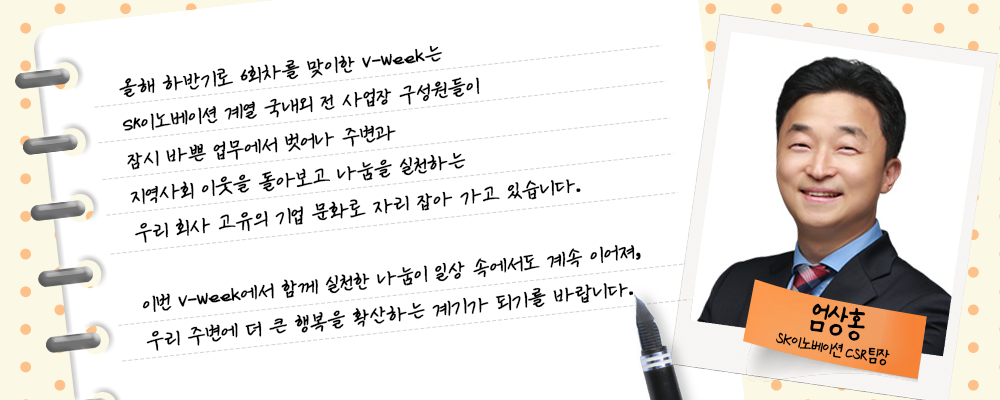 올해 하반기로 6회차를 맞이한 V-Week는
SK이노베이션 계열 국내외 전 사업장 구성원들이
잠시 바쁜 업무에서 벗어나 주변과
지역사회 이웃을 돌아보고 나눔을 실천하는
우리 회사 고유의 기업 문화로 자리 잡아 가고 있습니다.
이번 V-Week에서 함께 실천한 나눔이 일상 속에서도 계속 이어져,
우리 주변에 더 큰 행복을 확산하는 계기가 되기를 바랍니다.
엄상홍
SK이노베이션 CSR팀장